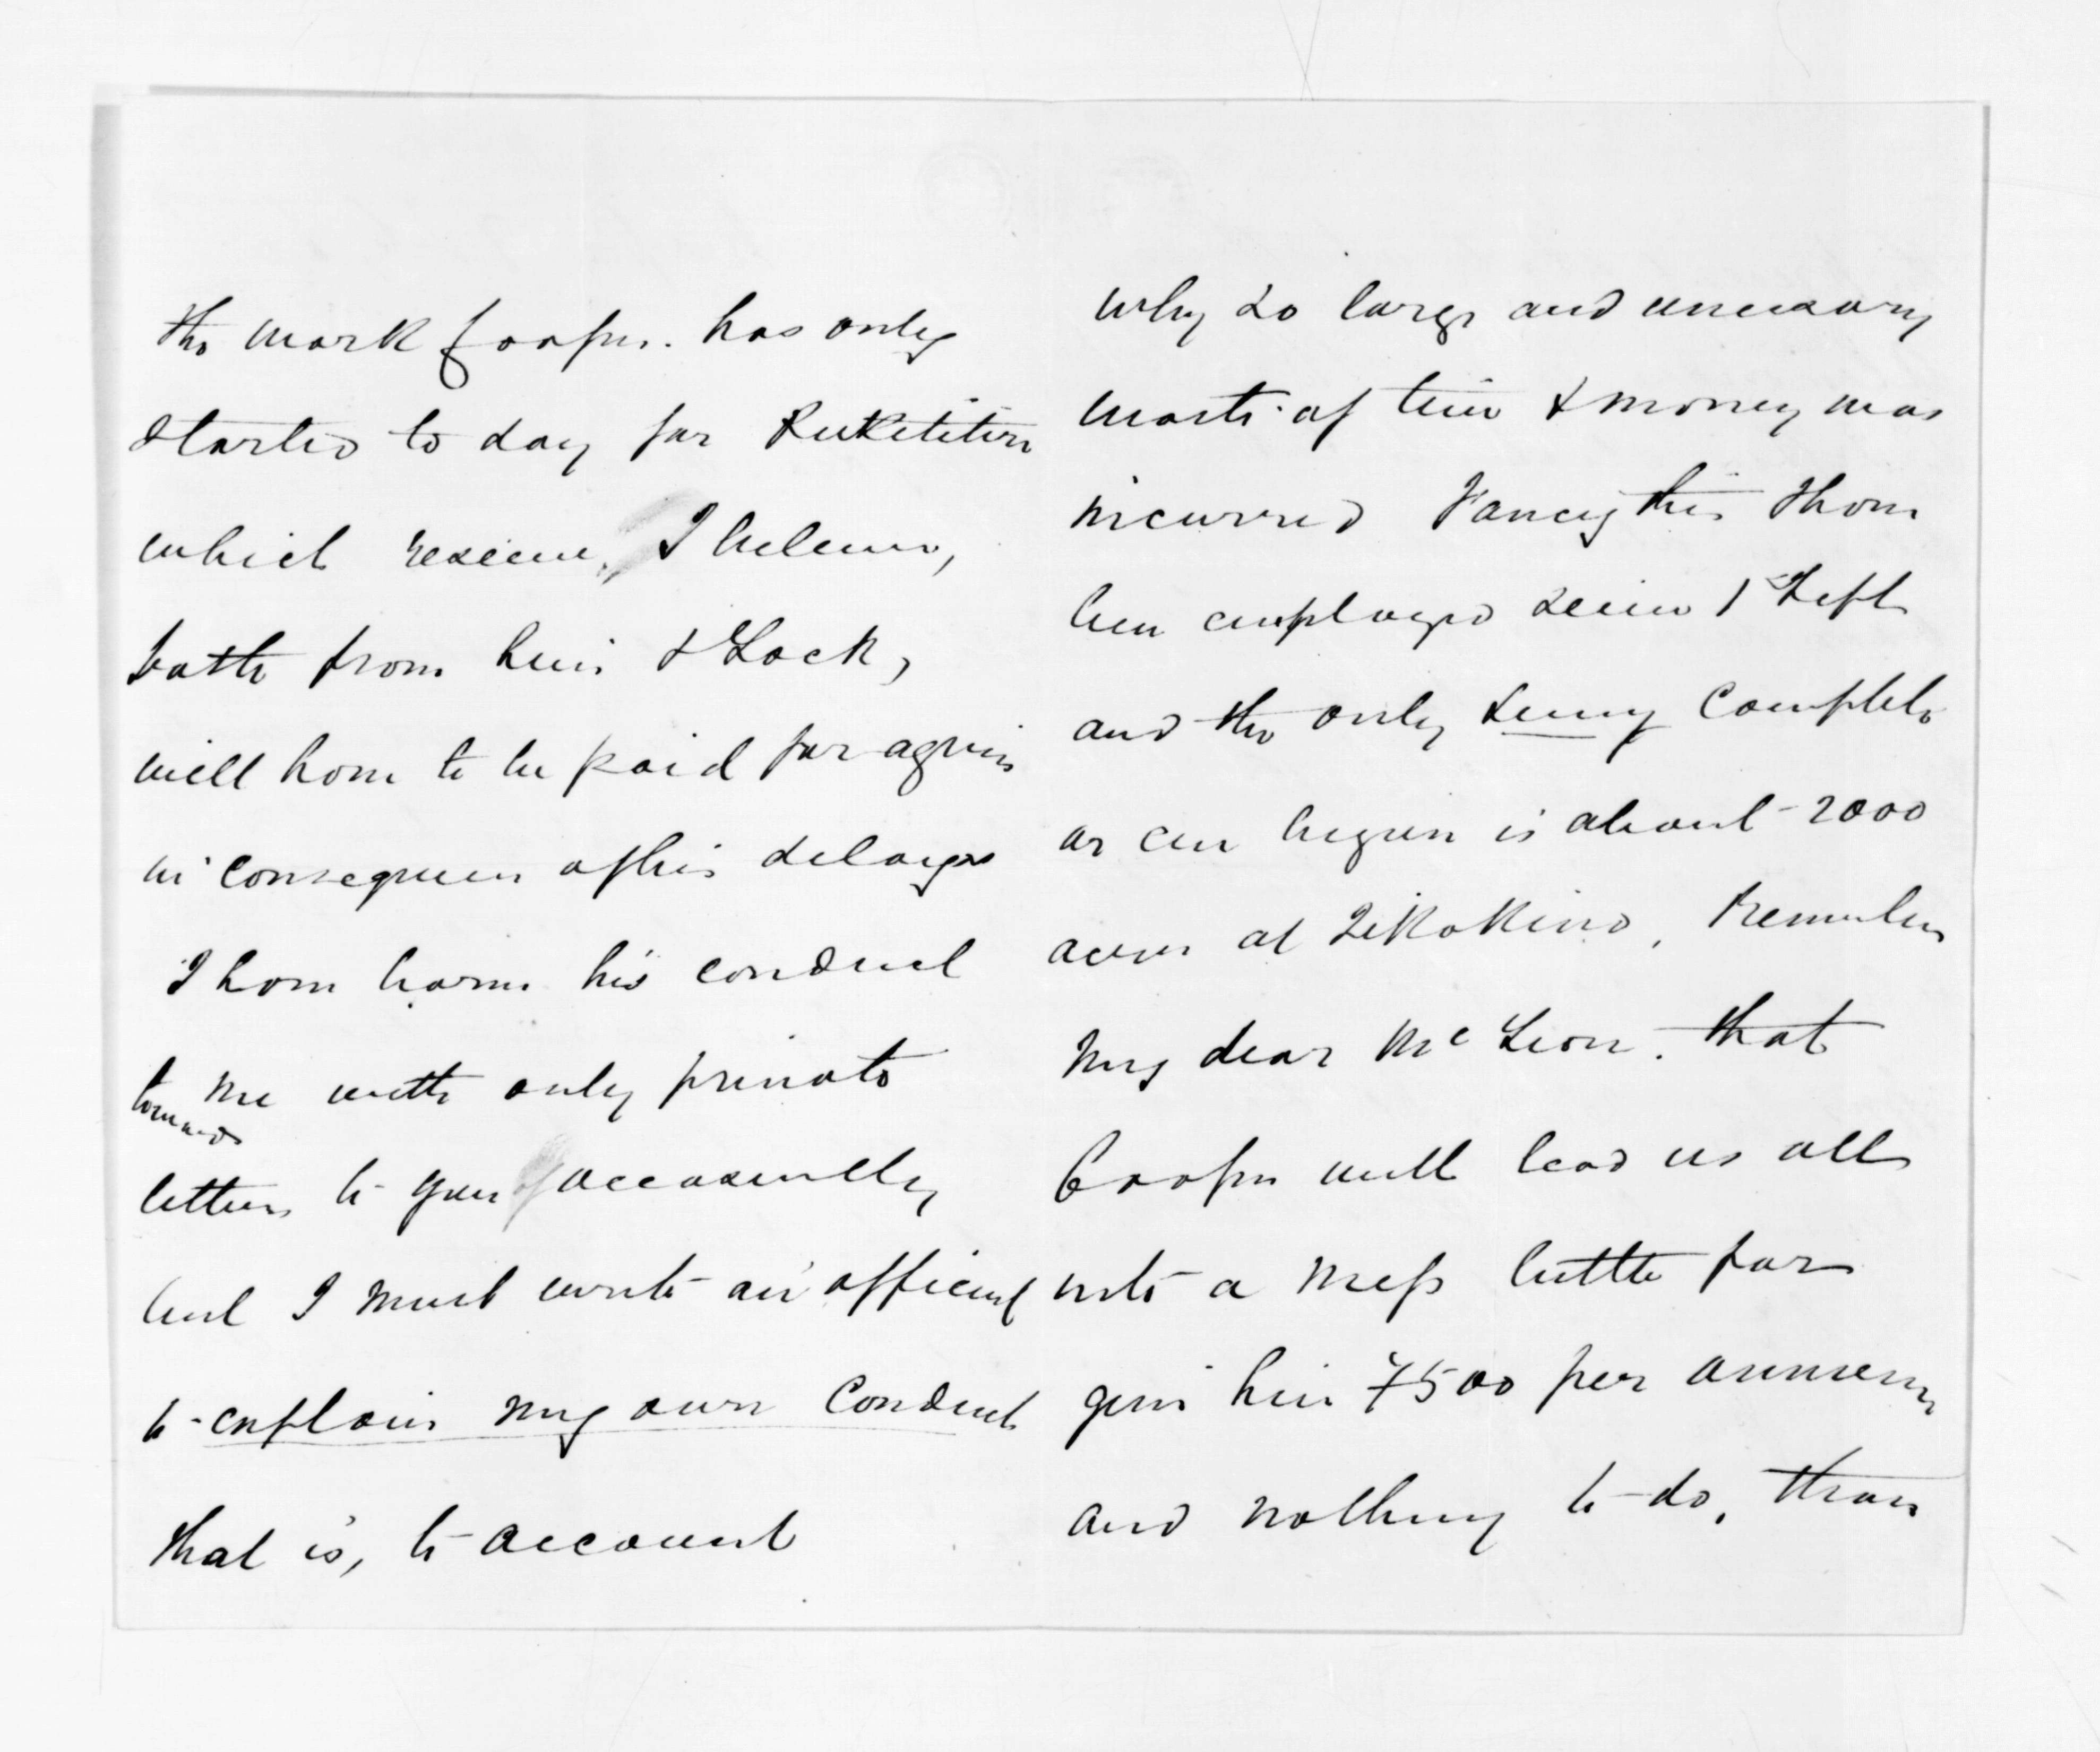 the work Cooper. has only
started to day for Ruketeturi
which reserve, I believe,
both from him & Lock,
will have to be paid for again
in consequence of his delays
I have borne his conduct
towards me with only private
letters to you occasionally
but I must write an official
to explain my own Conduct
that is, to account
why so large and unnecessary
waste of time & money was
incurred Fancy this I have
been employed since 1st Septr
and the only survey complete
or even begun is about 2000
acres at
Remember
my dear McLean. that
Cooper will lead us all
into a mess better far
give him £500 per annum
and nothing to do, than